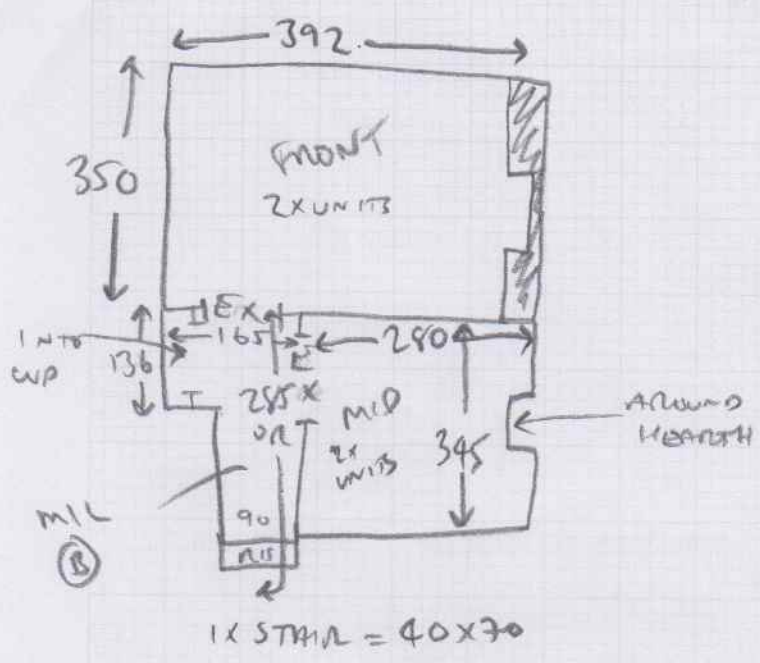 392
FRONT
350
2X UNITS
EX
INTO
CUP
136
165
280
E
285 X
OR
MID
2X
UNITS
345
AROUND
HEARTH
M/L
B
90
RIS
1X STAIR = 40X70